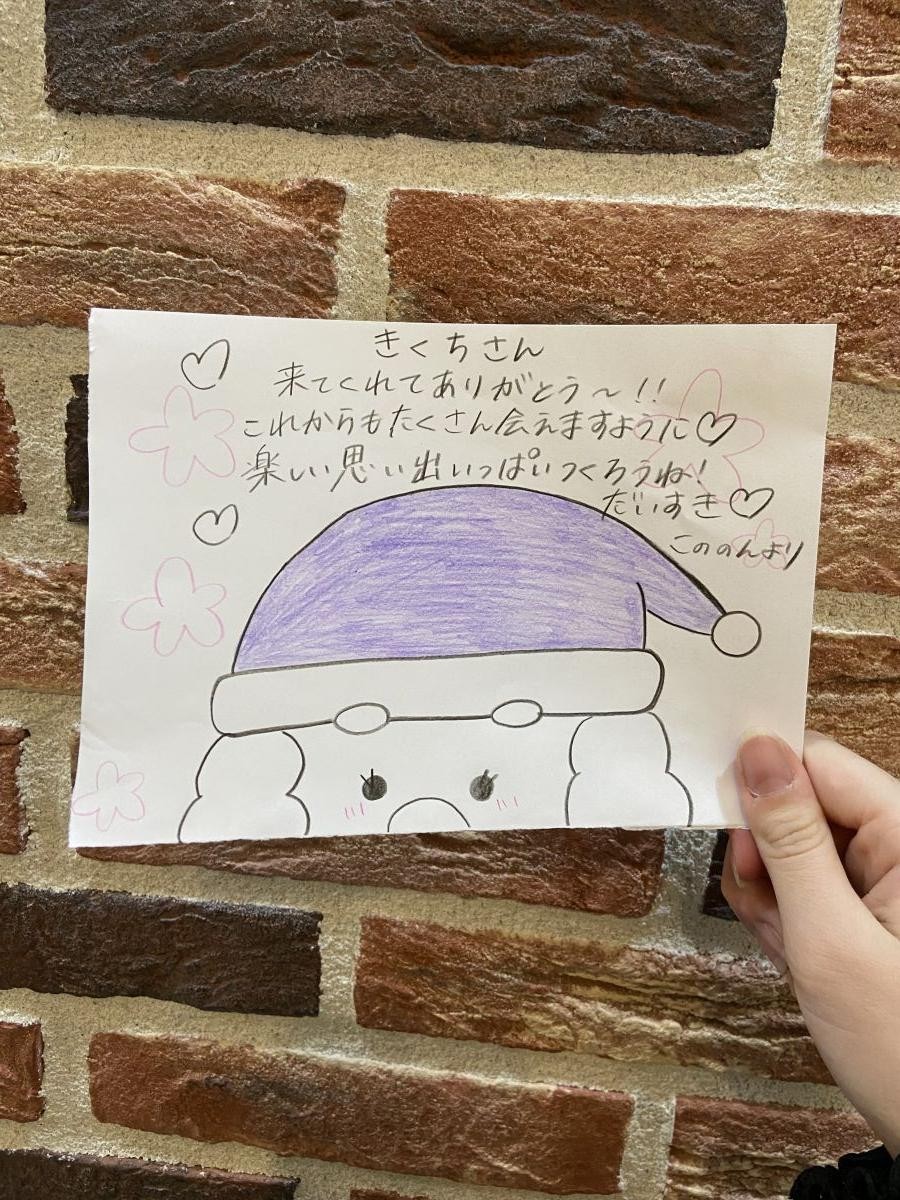 きくちさん
来てくれてありがとう〜!!
これからもたくさん会えますように♡
楽しい思い出いっぱいつくろうね!
だいすき♡
こののんより